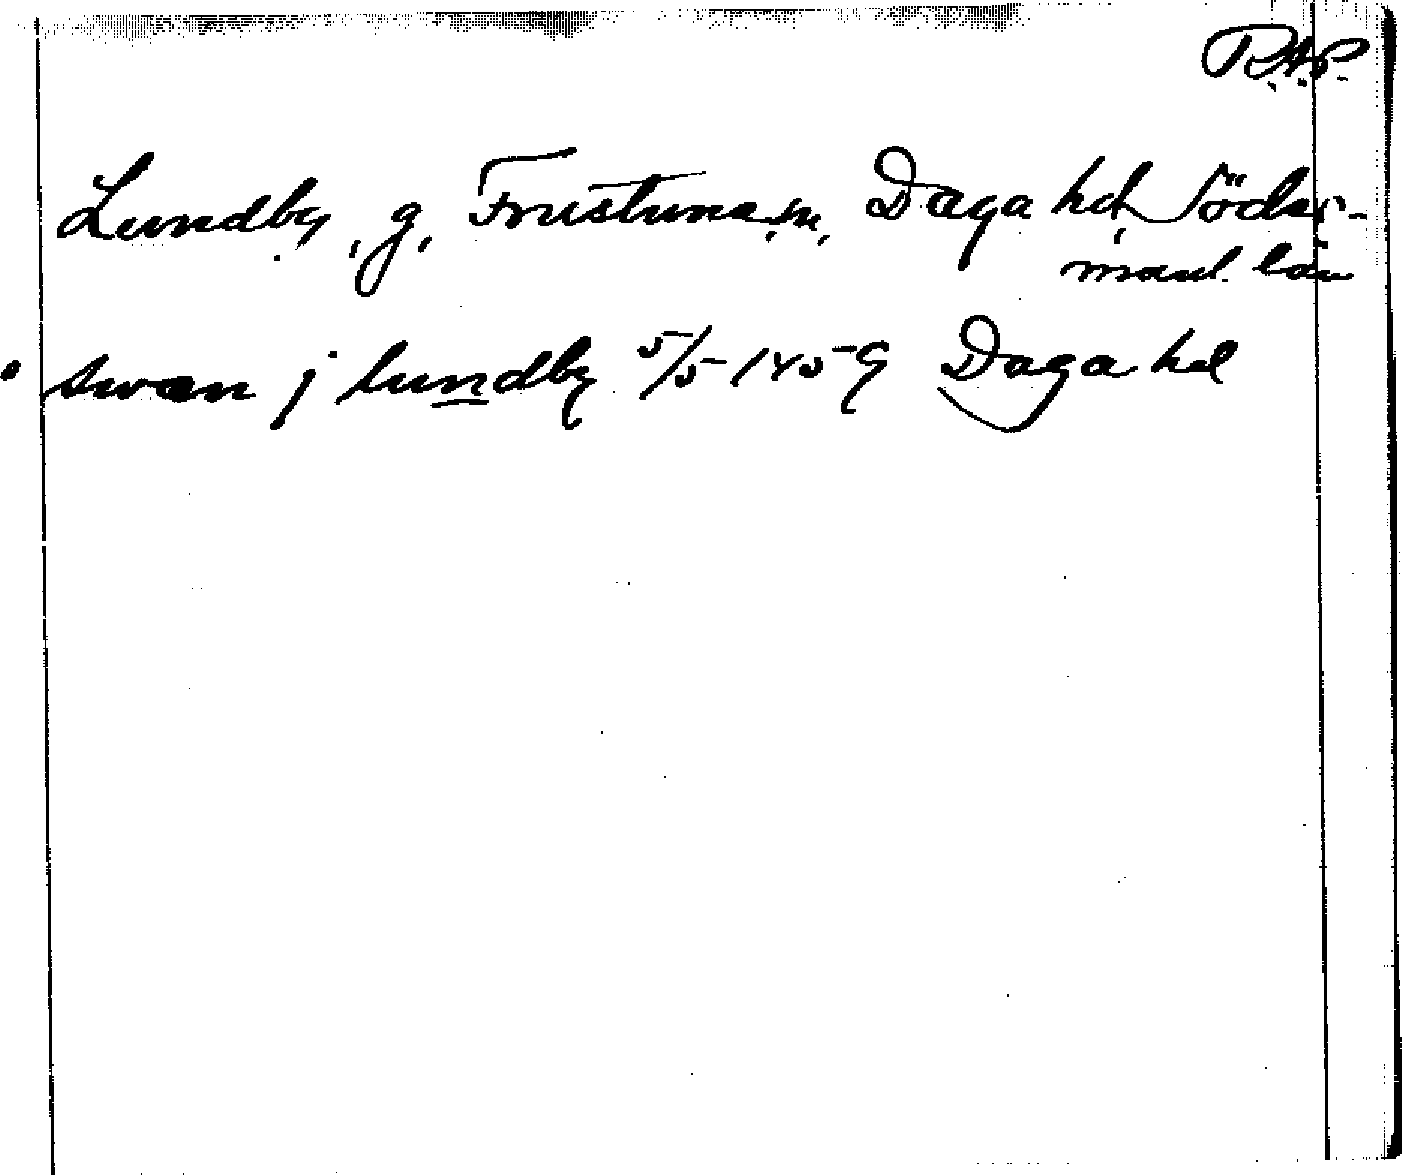 R.A.P.
Lundby, g, Frustuna sn, Daga hd, Söder-
manl. län
swæn j lundby 5/5 1459 Daga hd